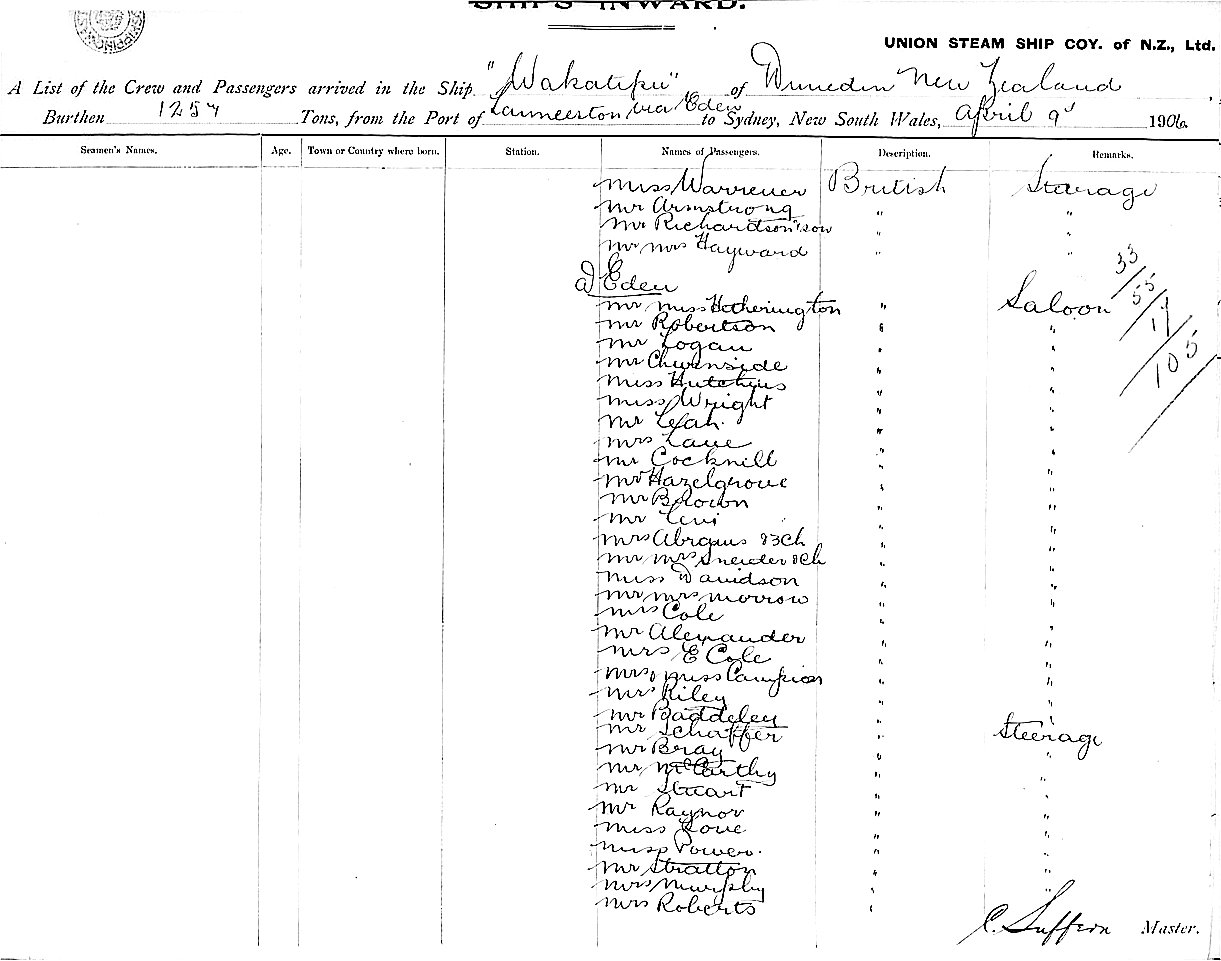 SHIP'S INWARD.
UNION STEAM SHIP COY. of N.Z., Ltd.
A List of the Crew and Passengers arrived in the Ship "Wakatipu" of Dunedin New Zealand
Burthen 1257 Tons, from the Port of Launceston via Eden to Sydney, New South Wales, April 9 1906.
Seamen's Names. Age. Town or Country where born. Station. Names of Passengers. Description. Remarks.
Miss Warrener British Steerage
Mr Armstrong " "
Mr Richardson & son " "
Mr Mrs Hayward " "
Eden
33
55
17
105
Mr Miss Hetherington " Saloon
Mr Robertson " "
Mr Logan " "
Mr Chirnside " "
Miss Hutchins " "
Miss Wright " "
Mr Leah " "
Mrs Lane " "
Mr Cocknill " "
Mr Hazelgrove " "
Mr Brown " "
Mr Levi " "
Mrs Abrams & 3 Ch " "
Mr Mrs & Ch " "
Miss Davidson " "
Mr Mrs Morrow " "
Mrs Cole " "
Mr Alexander " "
Mrs E Cole " "
Mrs, Miss Campion " "
Mrs Riley " "
Mr Baddeley " "
Mr Schaffer " Steerage
Mr Bray " "
Mr McCarthy " "
Mr Stuart " "
Mr Raynor " "
Miss Love " "
Miss Power " "
Mr Stratton " "
Mrs Murphy " "
Mrs Roberts "
C. Suffern Master.